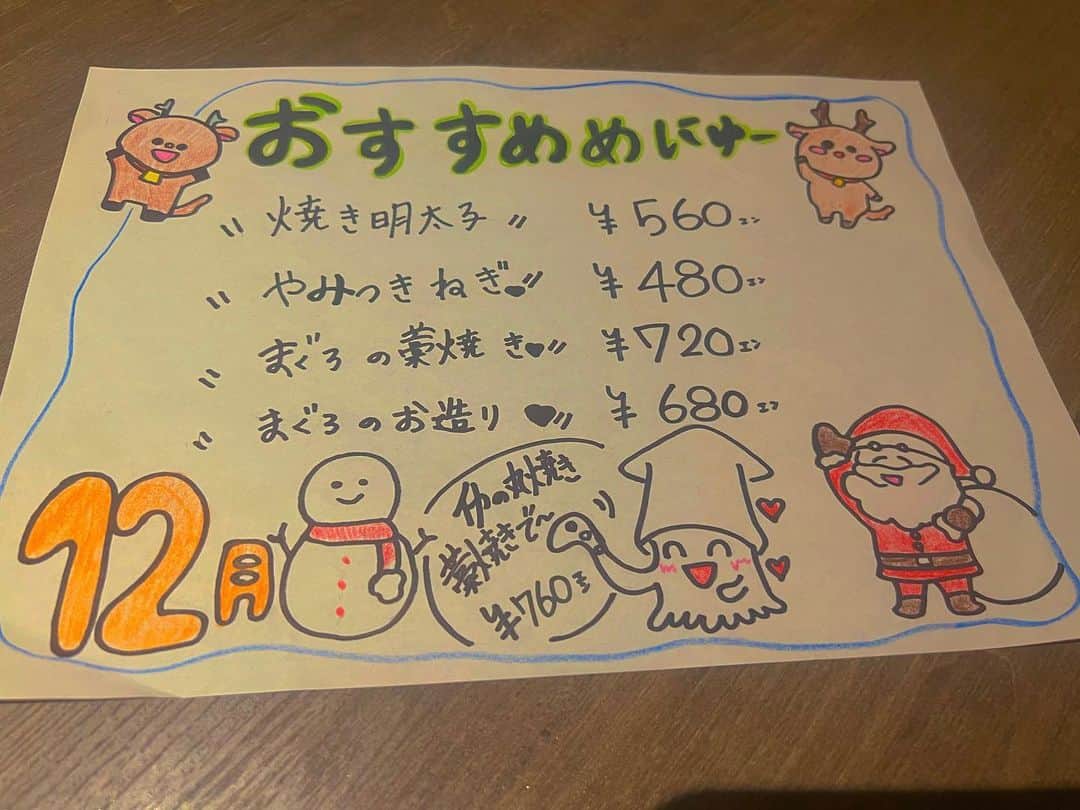 おすすめめにゅー
〃焼き明太子〃 ¥560エン
〃やみつきねぎ♥〃 ¥480エン
〃まぐろの藁焼き♥〃 ¥720エン
〃まぐろのお造り♥〃 ¥680エン
12月
イカの丸焼き
藁焼きで〜
¥760エン